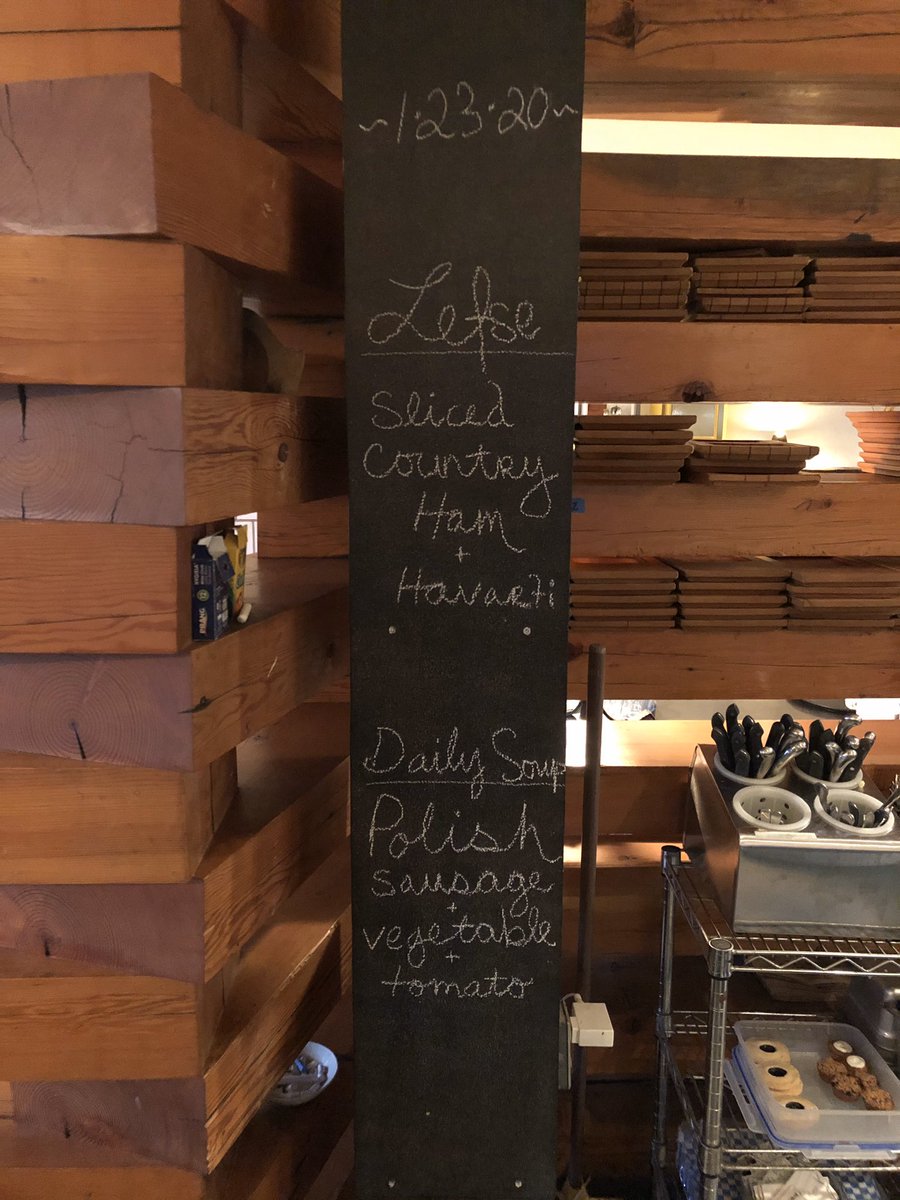 ~1·23·20~
Lefse
Sliced
Country
Ham
+
Havarti
Daily Soup
Polish
sausage
+
vegetable
+
tomato
PRANG